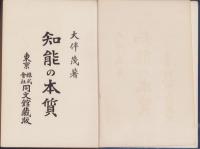 大伴茂著
知能の本質
東京 株式會社 同文館藏版